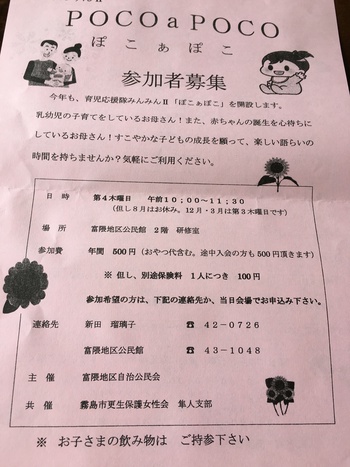 POCO a POCO
ぽこぁぽこ
参加者募集
今年も、育児応援隊みんみんⅡ「ぽこぁぽこ」を開設します。
乳幼児の子育てをしているお母さん！また、赤ちゃんの誕生を心待ちに
しているお母さん！すこやかな子どもの成長を願って、楽しい語らいの
時間を持ちませんか？気軽にご利用ください。
日 時 第４木曜日 午前１０；００～１１；３０
（但し８月はお休み。12月・3月は第３木曜日です）
場 所 富隈地区公民館 ２階 研修室
参加費 年間 500円（おやつ代含む。途中入会の方も 500円頂きます）
※ 但し、別途保険料 １人につき 100円
参加希望の方は、下記の連絡先か、当日会場でお申込み下さい。
連絡先 新田 瑠璃子 ☎ ４２－０７２６
富隈地区公民館 ☎ ４３－１０４８
主 催 富隈地区自治公民会
共 催 霧島市更生保護女性会 隼人支部
※ お子さまの飲み物は ご持参下さい